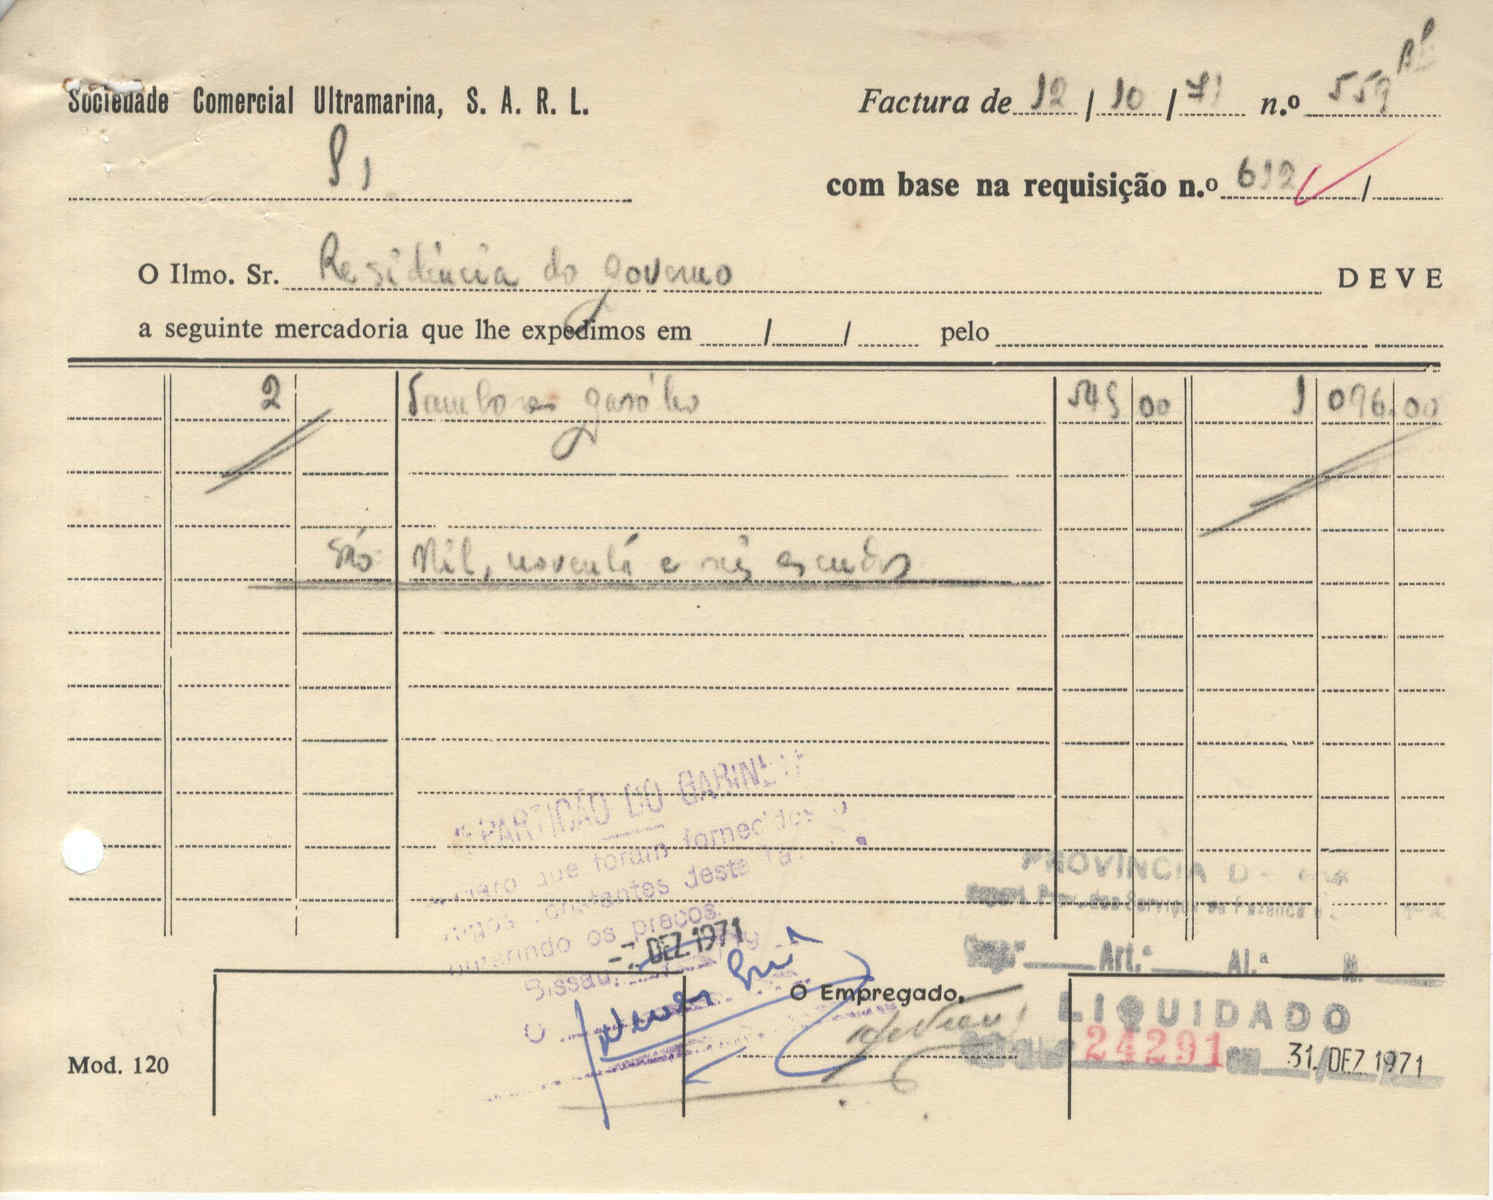 Sociedade Comercial Ultramarina, S. A. R. L.
Factura de 12/10/71 n.º 559
com base na requisição n.º 612 /
O Ilmo. Sr. Residência do governo DEVE
a seguinte mercadoria que lhe expedimos em / / pelo
2 Tambores gasóleo 548 00 1 096.00
São Mil, noventa e seis escudos
REPARTIÇÃO DO GABINETE
que foram fornecidos
constantes desta
os preços
Bissau,
- 7. DEZ 1971
O
PROVÍNCIA D
dos Serviços de Fazenda
Cap.º Art.º Al.ª N.
O Empregado,
LIQUIDADO
24291 em 31. DEZ 1971
Mod. 120